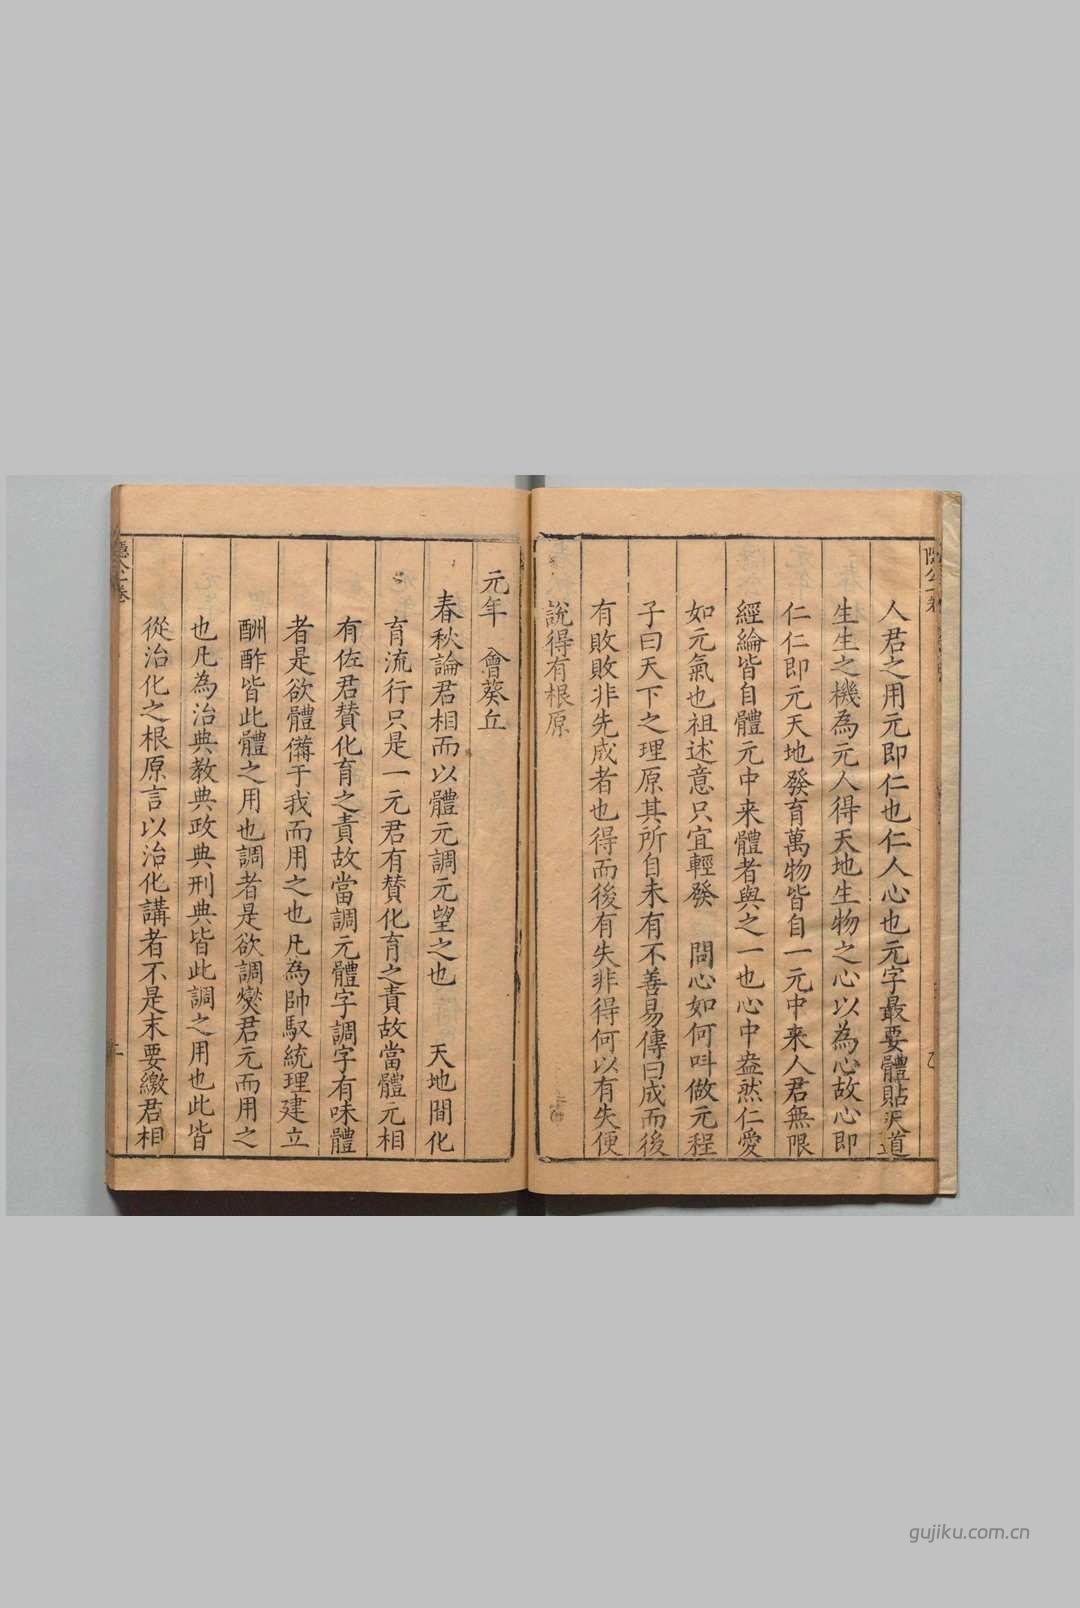 人君之用元即仁也仁人心也元字最要體貼天道
生生之機為元人得天地生物之心以為心故心即
仁仁即元天地發育萬物皆自一元中来人君無限
經綸皆自體元中来體者與之一也心中盎然仁愛
如元氣也祖述意只宜輕發 問心如何呌做元程
子曰天下之理原其所自未有不善易傳曰成而後
有敗敗非先成者也得而後有失非得何以有失便
說得有根原
元年 會葵丘
春秋論君相而以體元調元望之也 天地間化
育流行只是一元君有賛化育之責故當體元相
有佐君賛化育之責故當調元體字調字有味體
者是欲體僃于我而用之也凡為帥馭統理建立
酬酢皆此體之用也調者是欲調爕君元而用之
也凡為治典教典政典刑典皆此調之用也此皆
從治化之根原言以治化講者不是末要繳君相
隱公一卷
gujiku.com.cn